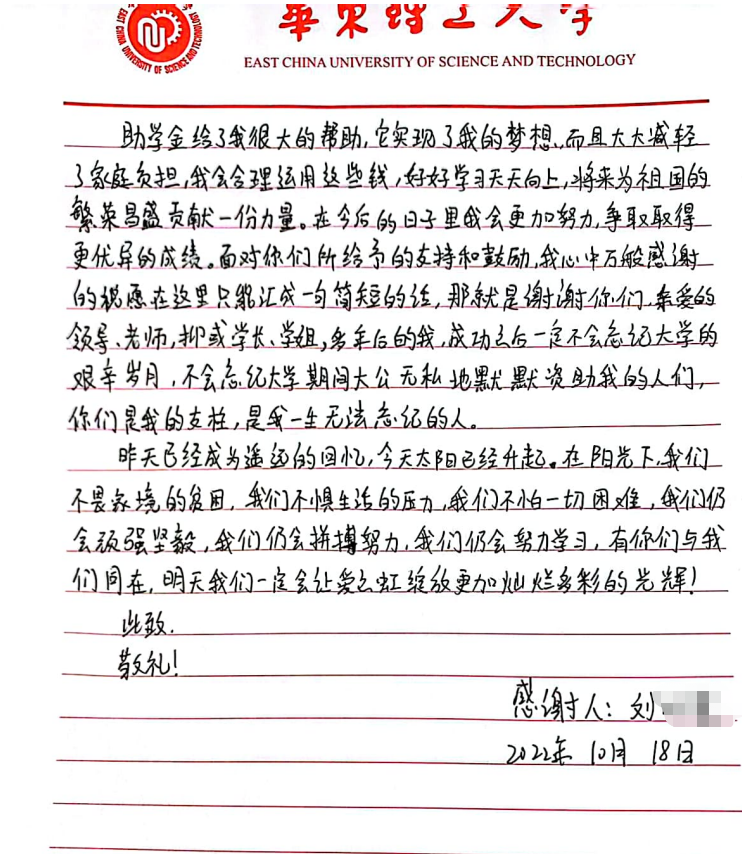 華東理工大学
EAST CHINA UNIVERSITY OF SCIENCE AND TECHNOLOGY
EAST CHINA UNIVERSITY OF SCIENCE AND TECHNOLOGY
助学金给了我很大的帮助,它实现了我的梦想、而且大大减轻
了家庭负担,我会合理运用这些钱,好好学习天天向上,将来为祖国的
繁荣昌盛贡献一份力量。在今后的日子里我会更加努力,争取取得
更优异的成绩。面对你们所给予的支持和鼓励,我心中万般感谢
的祝愿在这里只能汇成一句简短的话,那就是谢谢你们,亲爱的
领导、老师,抑或学长、学姐,多年后的我,成功之后一定不会忘记大学的
艰辛岁月,不会忘记大学期间大公无私地默默资助我的人们,
你们是我的支柱,是我一生无法忘记的人。
昨天已经成为遥远的回忆,今天太阳已经升起。在阳光下,我们
不畏家境的贫困,我们不惧生活的压力,我们不怕一切困难,我们仍
会顽强坚毅,我们仍会拼搏努力,我们仍会努力学习,有你们与我
们同在,明天我们一定会让爱之虹绽放更加灿烂多彩的光辉!
此致.
敬礼!
感谢人:刘
2022年 10月 18日